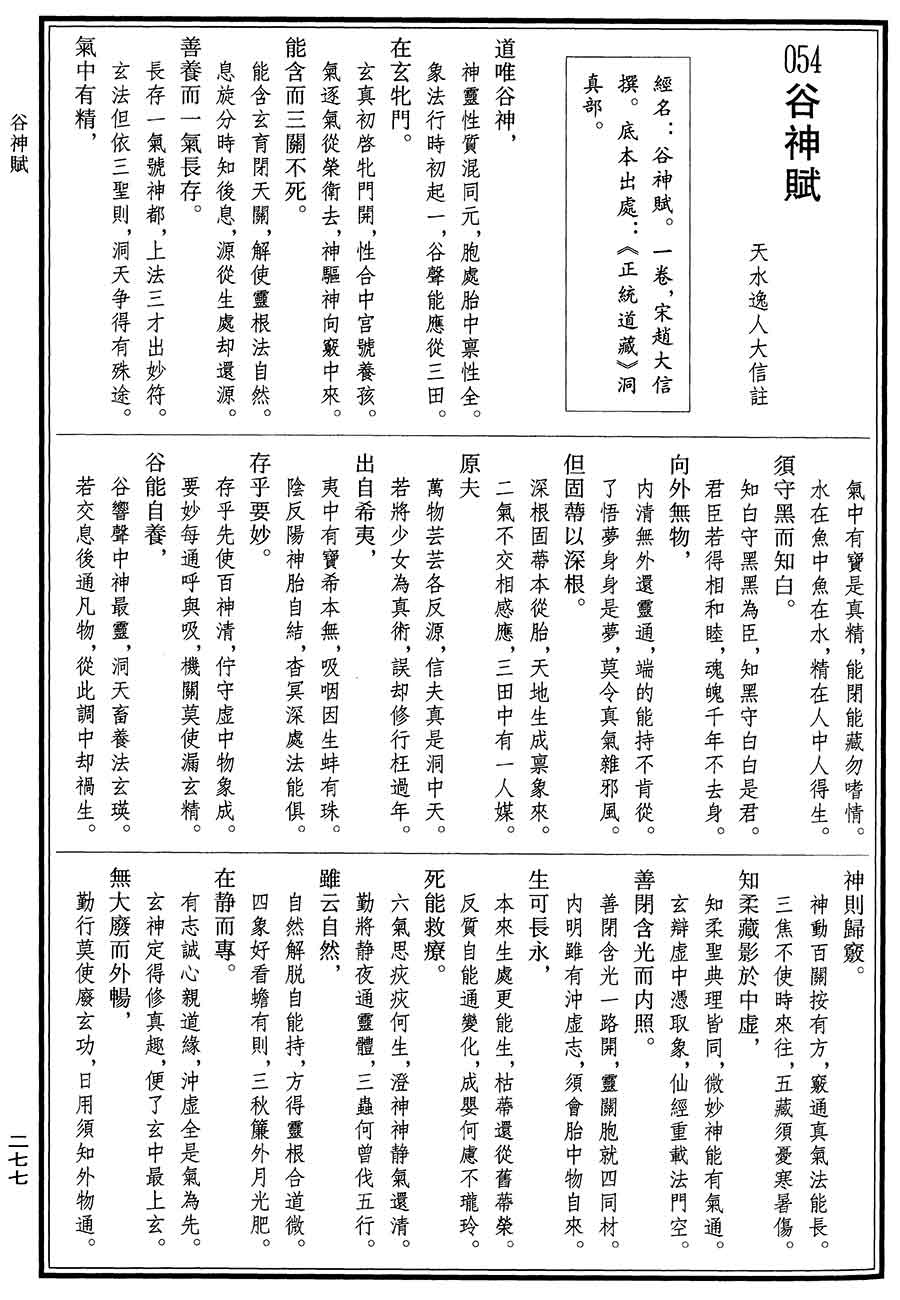 054谷神賦
天水逸人大信註
經名：谷神賦。一卷，宋趙大信
撰。底本出處：《正統道藏》洞
真部。
道唯谷神，
神靈性質混同元，胞處胎中稟性全。
象法行時初起一，谷聲能應從三田。
在玄牝門。
玄真初啓牝門開，性合中宮號養孩。
氣逐氣從榮衛去，神驅神向竅中來。
能含而三關不死。
能含玄育閉天關，解使靈根法自然。
息旋分時知後息，源從生處却還源。
善養而一氣長存。
長存一氣號神都，上法三才出妙符。
玄法但依三聖則，洞天争得有殊途。
氣中有精，
氣中有寶是真精，能閉能藏勿嗜情。
水在魚中魚在水，精在人中人得生。
須守黑而知白。
知白守黑黑為臣，知黑守白白是君。
君臣若得相和睦，魂魄千年不去身。
向外無物，
内清無外還靈通，端的能持不肯從。
了悟夢身身是夢，莫令真氣雜邪風。
但固蔕以深根。
深根固蔕本從胎，天地生成禀象來。
二氣不交相感應，三田中有一人媒。
原夫
萬物芸芸各反源，信夫真是洞中天。
若將少女為真術，誤却修行枉過年。
出自希夷，
夷中有寶希本無，吸咽因生蚌有珠。
陰反陽神胎自結，杳冥深處法能俱。
存乎要妙。
存乎先使百神清，佇守虛中物象成。
要妙每通呼與吸，機關莫使漏玄精。
谷能自養，
谷響聲中神最靈，洞天畜養法玄瑛。
若交息後通凡物，從此調中却禍生。
神則歸竅。
神動百關按有方，竅通真氣法能長。
三焦不使時來往，五藏須憂寒暑傷。
知柔藏影於中虛，
知柔聖典理皆同，微妙神能有氣通。
玄辯虛中憑取象，仙經重載法門空。
善閉含光而内照。
善閉含光一路開，靈關胞就四同材。
内明雖有沖虛志，須會胎中物自來。
生可長永，
本來生處更能生，枯蔕還從舊蔕榮。
反質自能通變化，成嬰何慮不瓏玲。
死能救療。
六氣思疢疢何生，澄神神静氣還清。
勤將静夜通靈體，三蟲何曾伐五行。
雖云自然，
自然解脱自能持，方得靈根合道微。
四象好看蟾有則，三秋簾外月光肥。
在静而專。
有志誠心親道緣，沖虛全是氣為先。
玄神定得修真趣，便了玄中最上玄。
無大廢而外暢，
勤行莫使廢玄功，日用須知外物通。
谷神賦
二七七